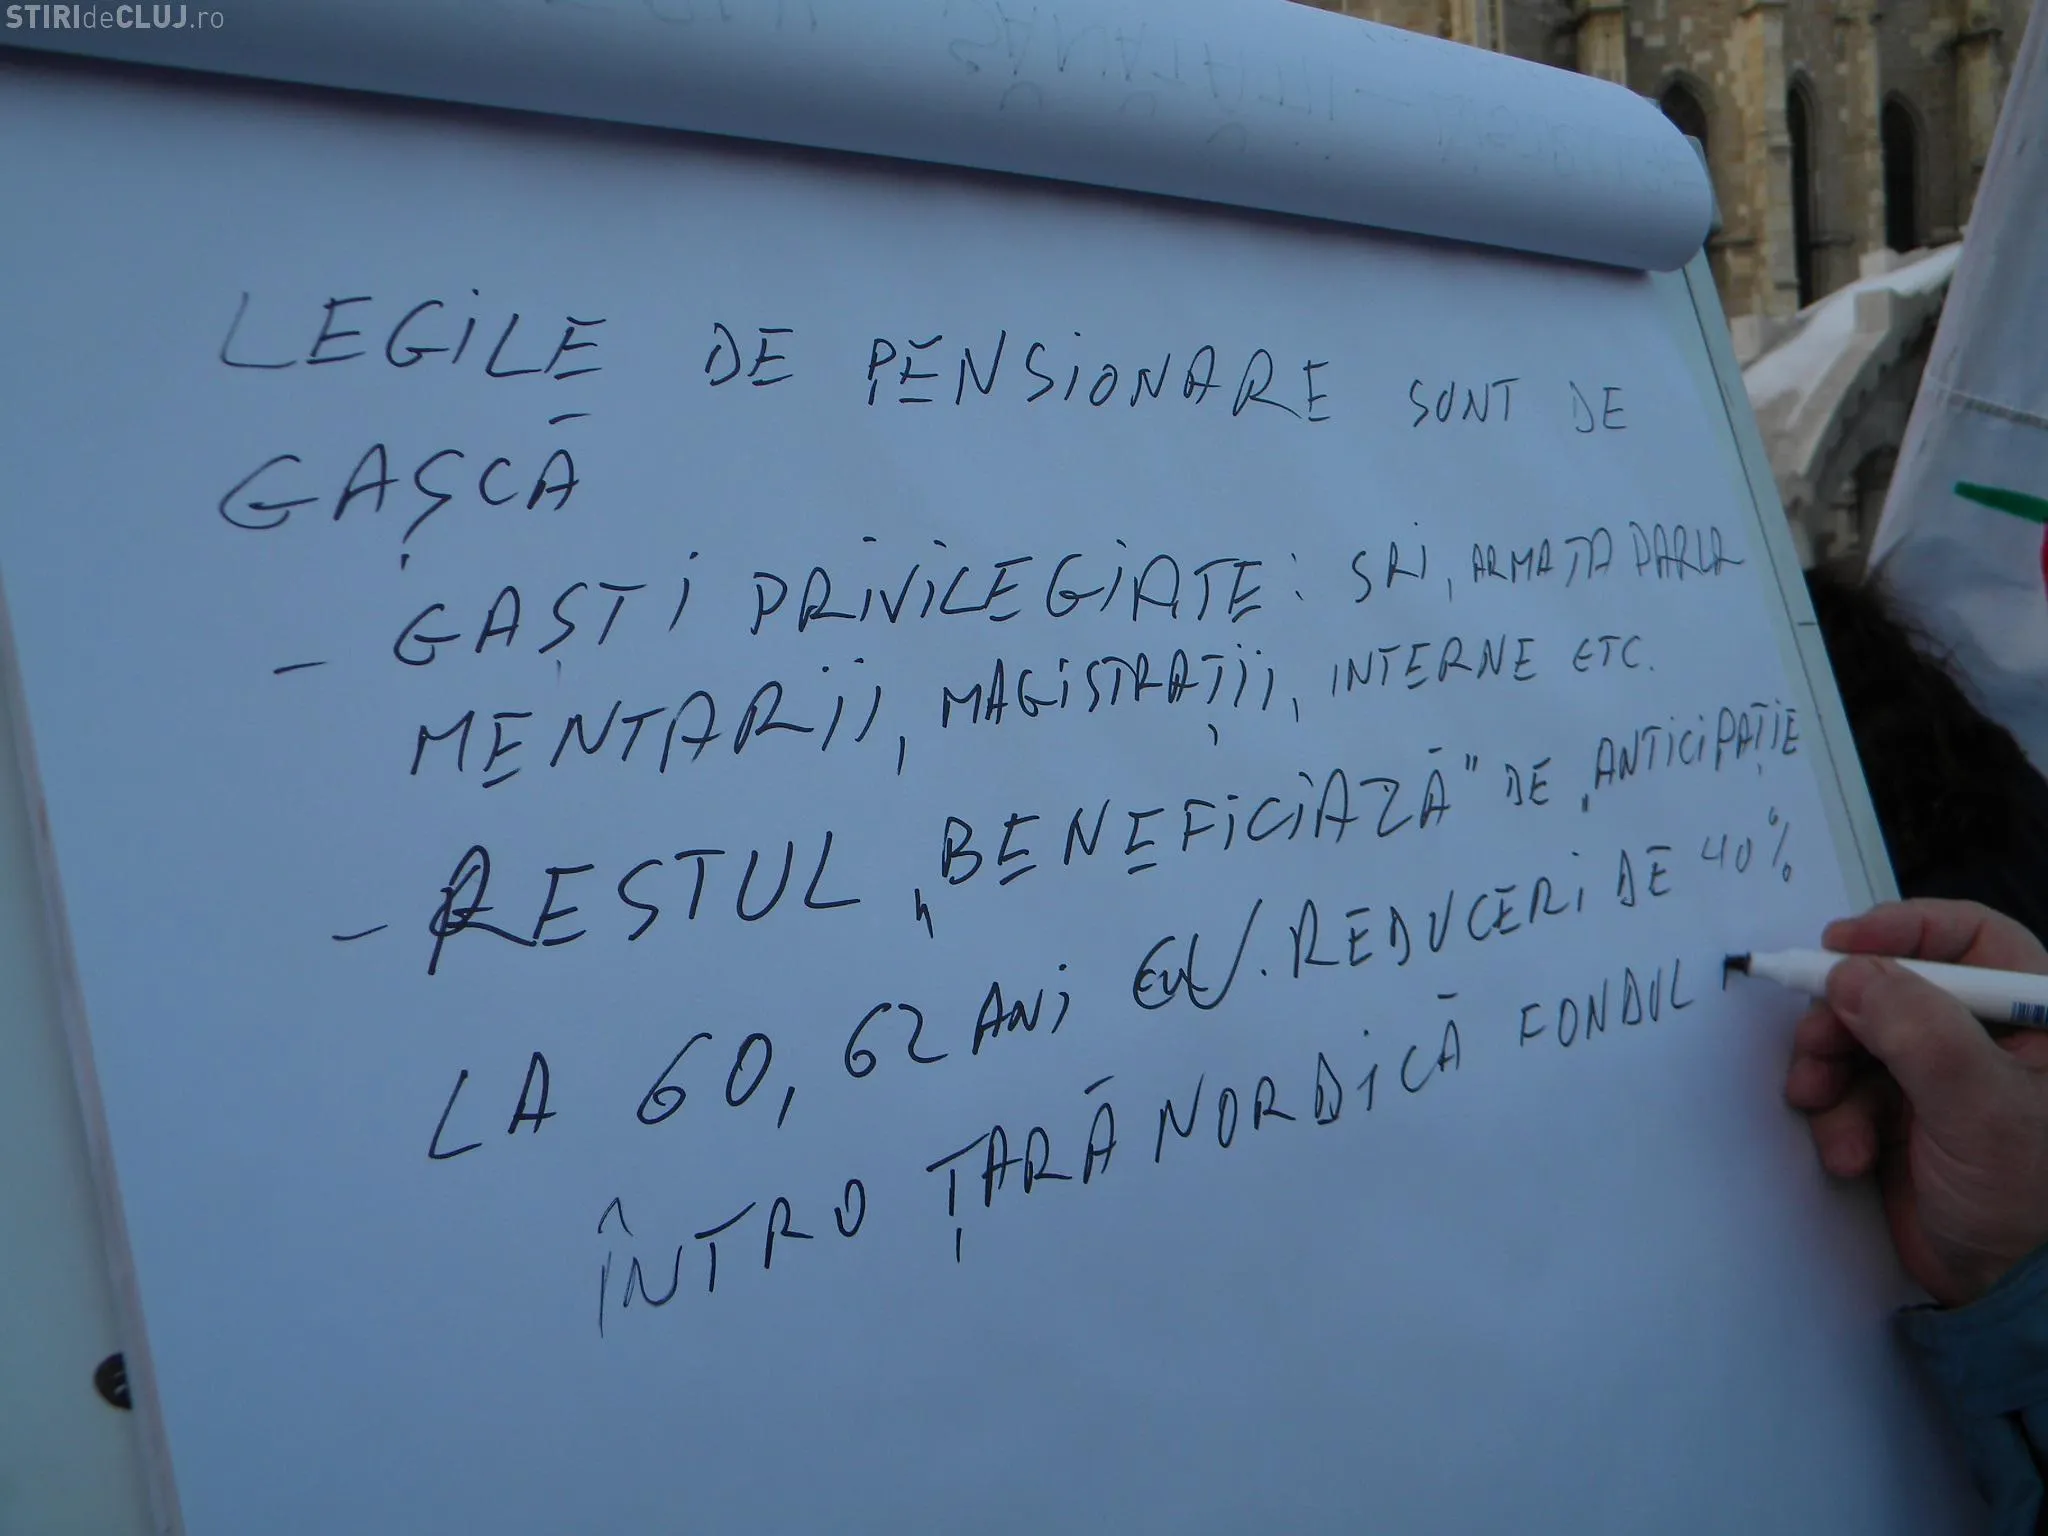 STIRIdeCLUJ.ro
LEGILE DE PENSIONARE SUNT DE
GAȘCĂ
- GAȘTI PRIVILEGIATE: SRI, ARMATA PARLA
MENTARII, MAGISTRAȚII, INTERNE ETC.
- RESTUL „BENEFICIAZĂ" DE „ANTICIPAȚIE
LA 60, 62 ANI CU. REDUCERI DE 40%
ÎNTRO ȚARĂ NORDICĂ FONDUL